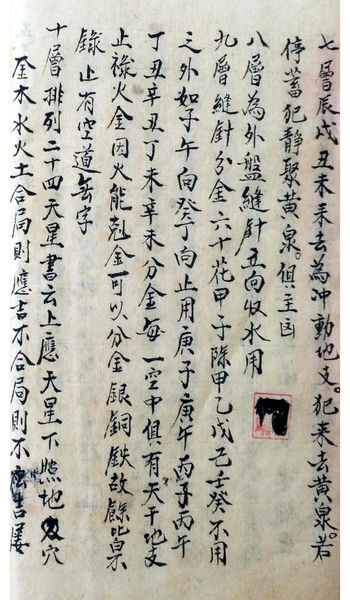 七層辰戌丑未来去為冲動地支。犯来去黄泉。若
停蓄犯靜聚黄泉。俱主凶
八層為外盤縫針立向收水用
九層縫針分金六十花甲子除甲乙戊己壬癸不用
之外如子午向癸丁向止用庚子庚午丙子丙午
丁丑辛丑丁未辛未分金每一空中俱有天干地支
止禄火金因火能剋金可以分金銀銅鉄故餘皆
錄止有空道無字
十層排列二十四天星書云上應天星下照地穴
金木水火土合局則應吉不合局則不應吉屡